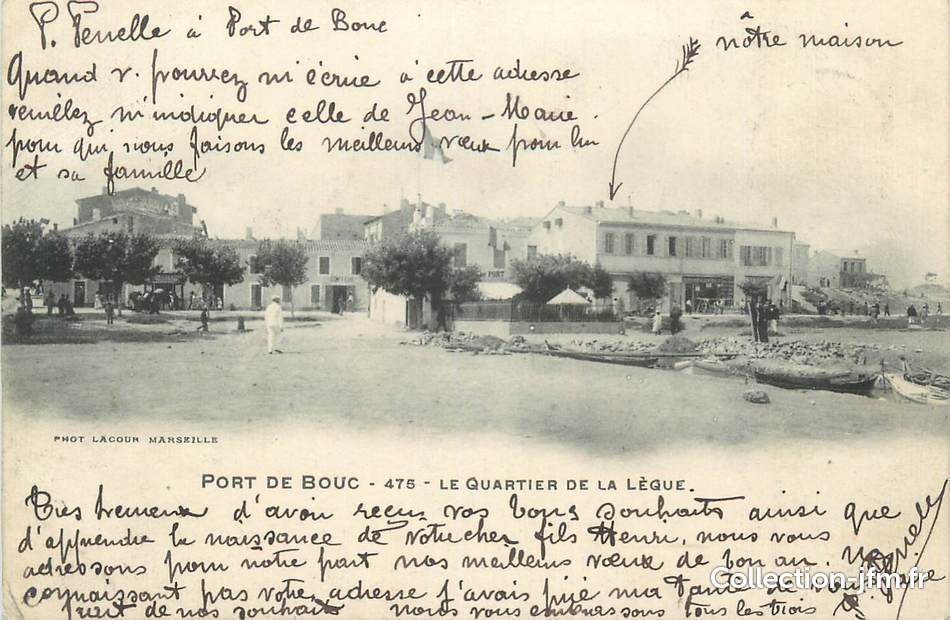 P. Penelle à Port de Bouc
nôtre maison
Quand v. pourrez m'écrire à cette adresse
veuillez m'indiquer celle de Jean-Marie.
pour qui nous faisons les meilleurs vœux pour lui
et sa famille
PORT
PHOT LACOUR MARSEILLE
PORT DE BOUC - 475 - LE QUARTIER DE LA LÈQUE.
Très heureux d'avoir reçu vos bons souhaits ainsi que
d'apprendre la naissance de votre cher fils Henri, nous vous
adressons pour notre part nos meilleurs vœux de bon an. Ne
connaissant pas votre adresse j'avais prié ma Tante de vous
part de nos souhaits nous vous embrassons tous les trois
Collection-jfm.fr